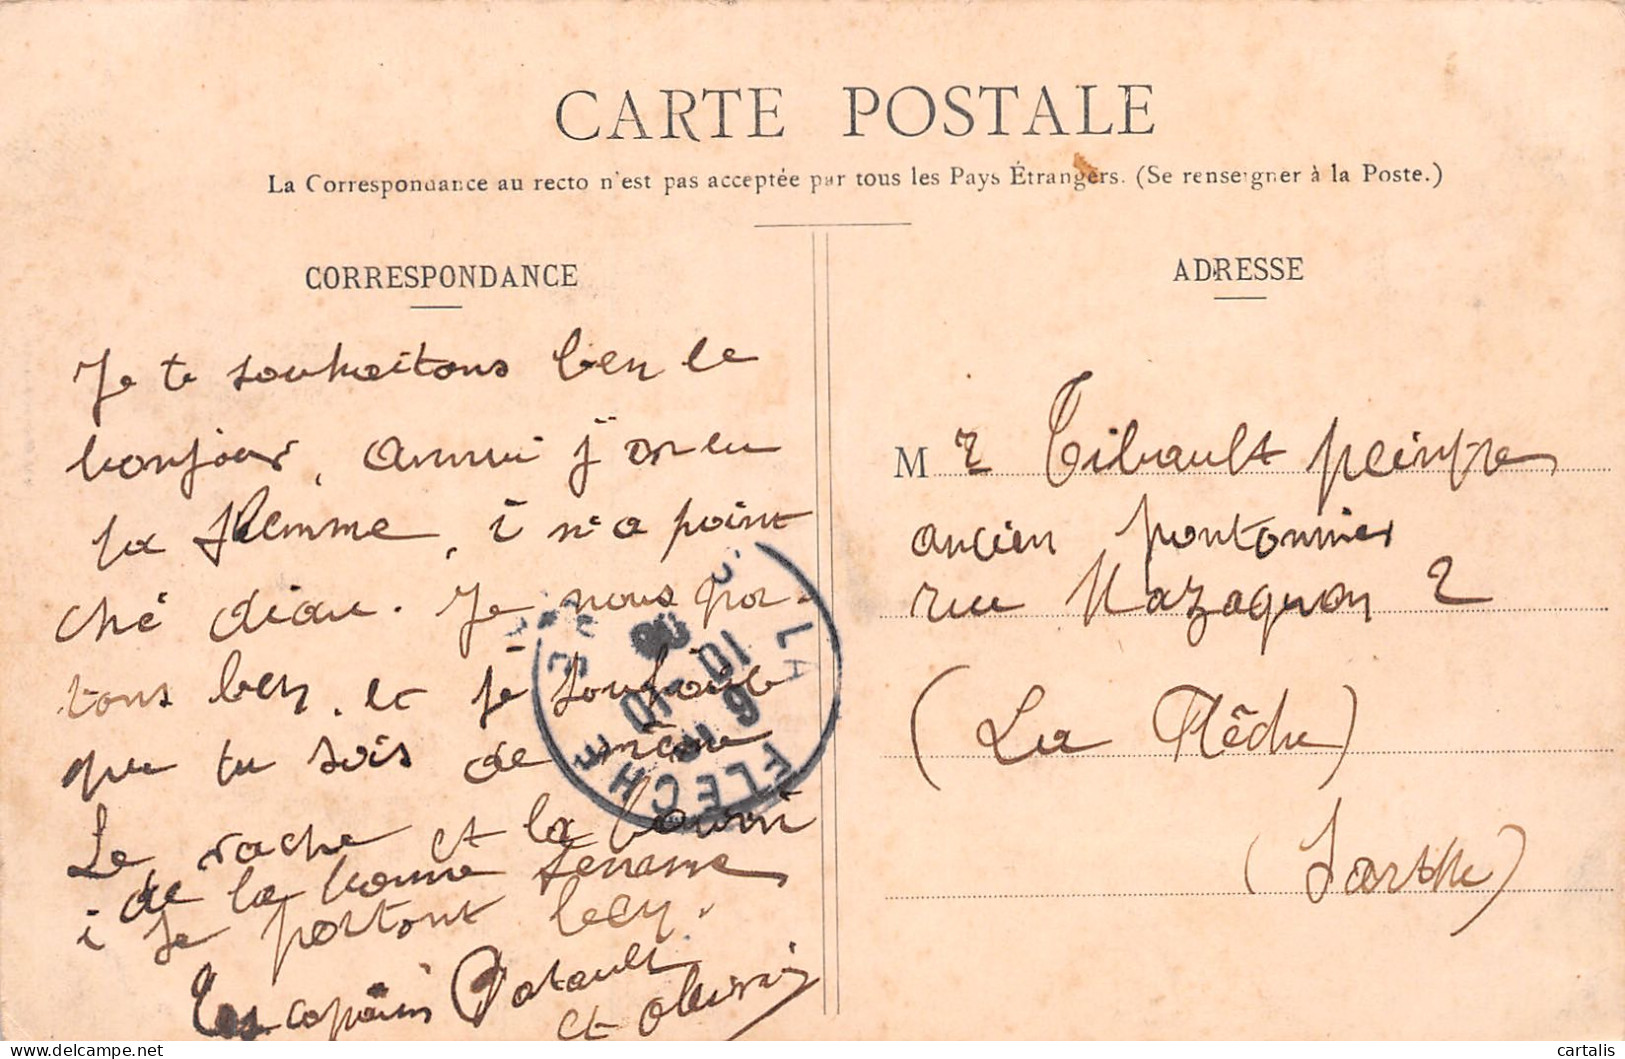 CARTE POSTALE
La Correspondance au recto n'est pas acceptée par tous les Pays Étrangers. (Se renseigner à la Poste.)
CORRESPONDANCE
Je te souhaitons ben le
bonjour,
la femme, i n'a point
ché diau. Je nous por-
tons ben. et je souhaite
que tu sois de même
Le vache et la
de la bonne femme
i se portont ben.
Les copains Patault
et
ADRESSE
M r Tibault peintre
ancien pontonnier
rue Mazagnon 2
(La Flêche)
(Sarthe)
LA FLECHE
10-10
cartalis